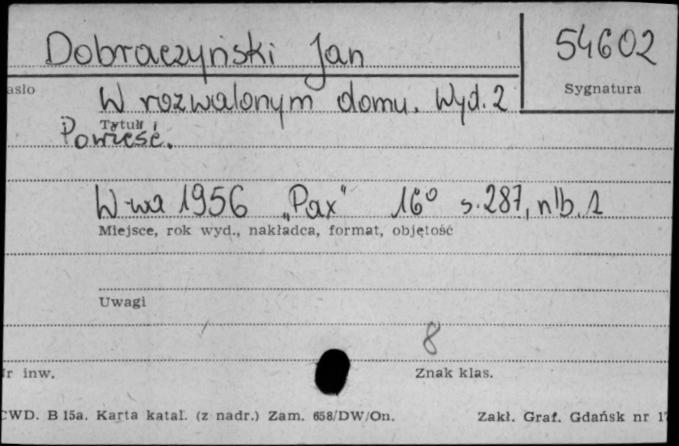 Dobraczyński Jan
54602
asło
Sygnatura
W rozwalonym domu. Wyd. 2
Tytuł i
Powieść.
W-wa 1956 „Pax" 16° s. 287, nlb. 1
Miejsce, rok wyd., nakładca, format, objętość
Uwagi
8
Nr inw.
Znak klas.
CWD. B 15a. Karta katal. (z nadr.) Zam. 658/DW/On.
Zakł. Graf. Gdańsk nr 17